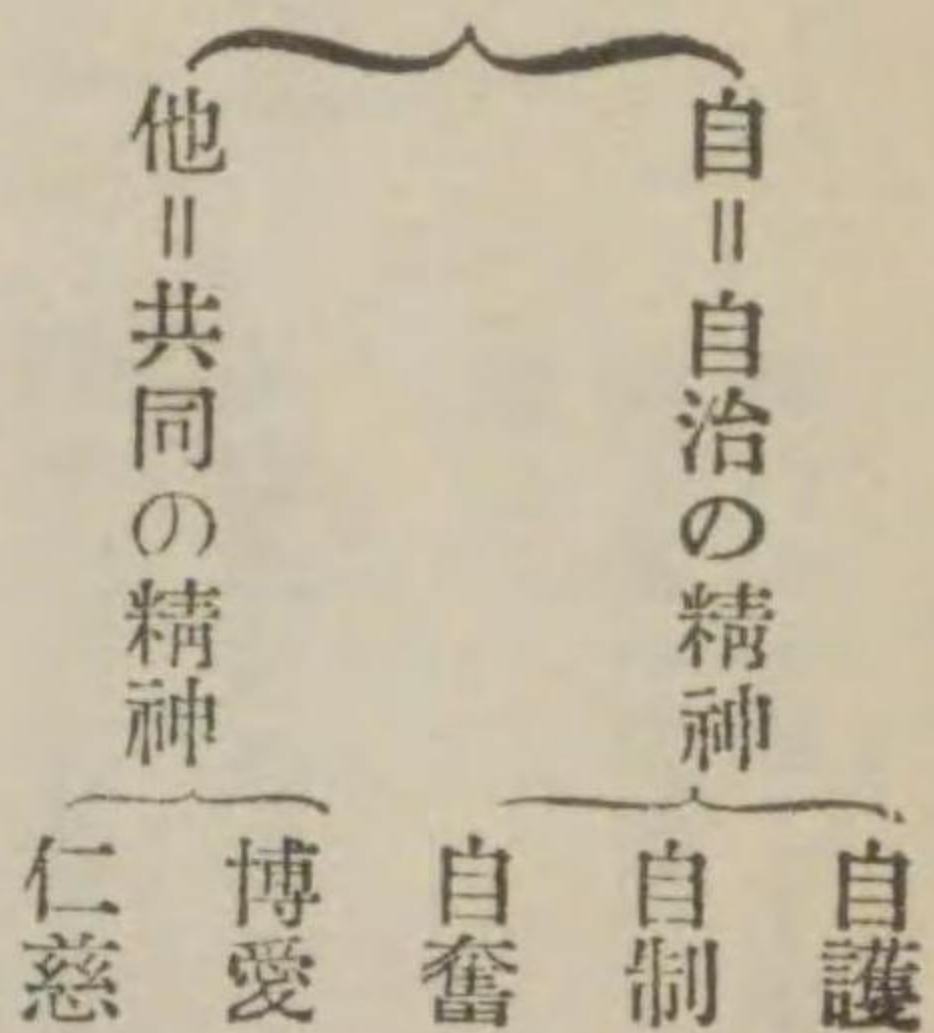 自＝自治の精神
自護
自制
自奮
他＝共同の精神
博愛
仁慈